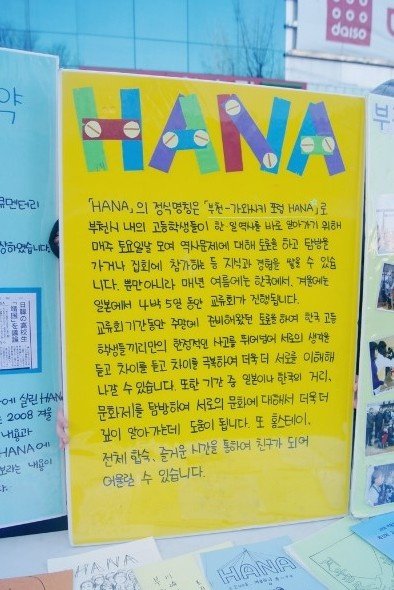 daiso
HANA
「HANA」의 정식명칭은「부천-가와사키 포럼 HANA」로
부천시 내의 고등학생들이 한 일역사를 바로 알아가기 위해
매주 토요일날 모여 역사문제에 대해 토론을 하고 답방을
가거나 집회에 참가하는 등 지식과 경험을 쌓을 수 있습
니다. 뿐만아니라 매년 여름에는 한국에서, 겨울에는
일본에서 4박 5일 동안 교류회가 진행됩니다.
교류회 기간동안 주먼에 준비해왔던 토론을 하며 한국 고등
학생들끼리만의 한정적인 사고를 뛰어넘어 서로의 생각을
듣고 차이를 듣고 차이를 극복하여 더욱 더 서로를 이해해
나갈 수 있습니다. 또한 기간 중 일본이나 한국의 거리,
문화재를 탐방하여 서로의 문화에 대해서 더욱 더
깊이 알아가는데 도움이 됩니다. 또 홈스테이,
전체 합숙, 즐거운 시간을 통하여 친구가 되어
어울릴 수 있습니다.
약
큐멘터리
상하였습니다.
日韓の高校生
에 실린 HAN
는 2008 겨울
내용과
HANA 에
보라는 내용이
부
HANA
HANA